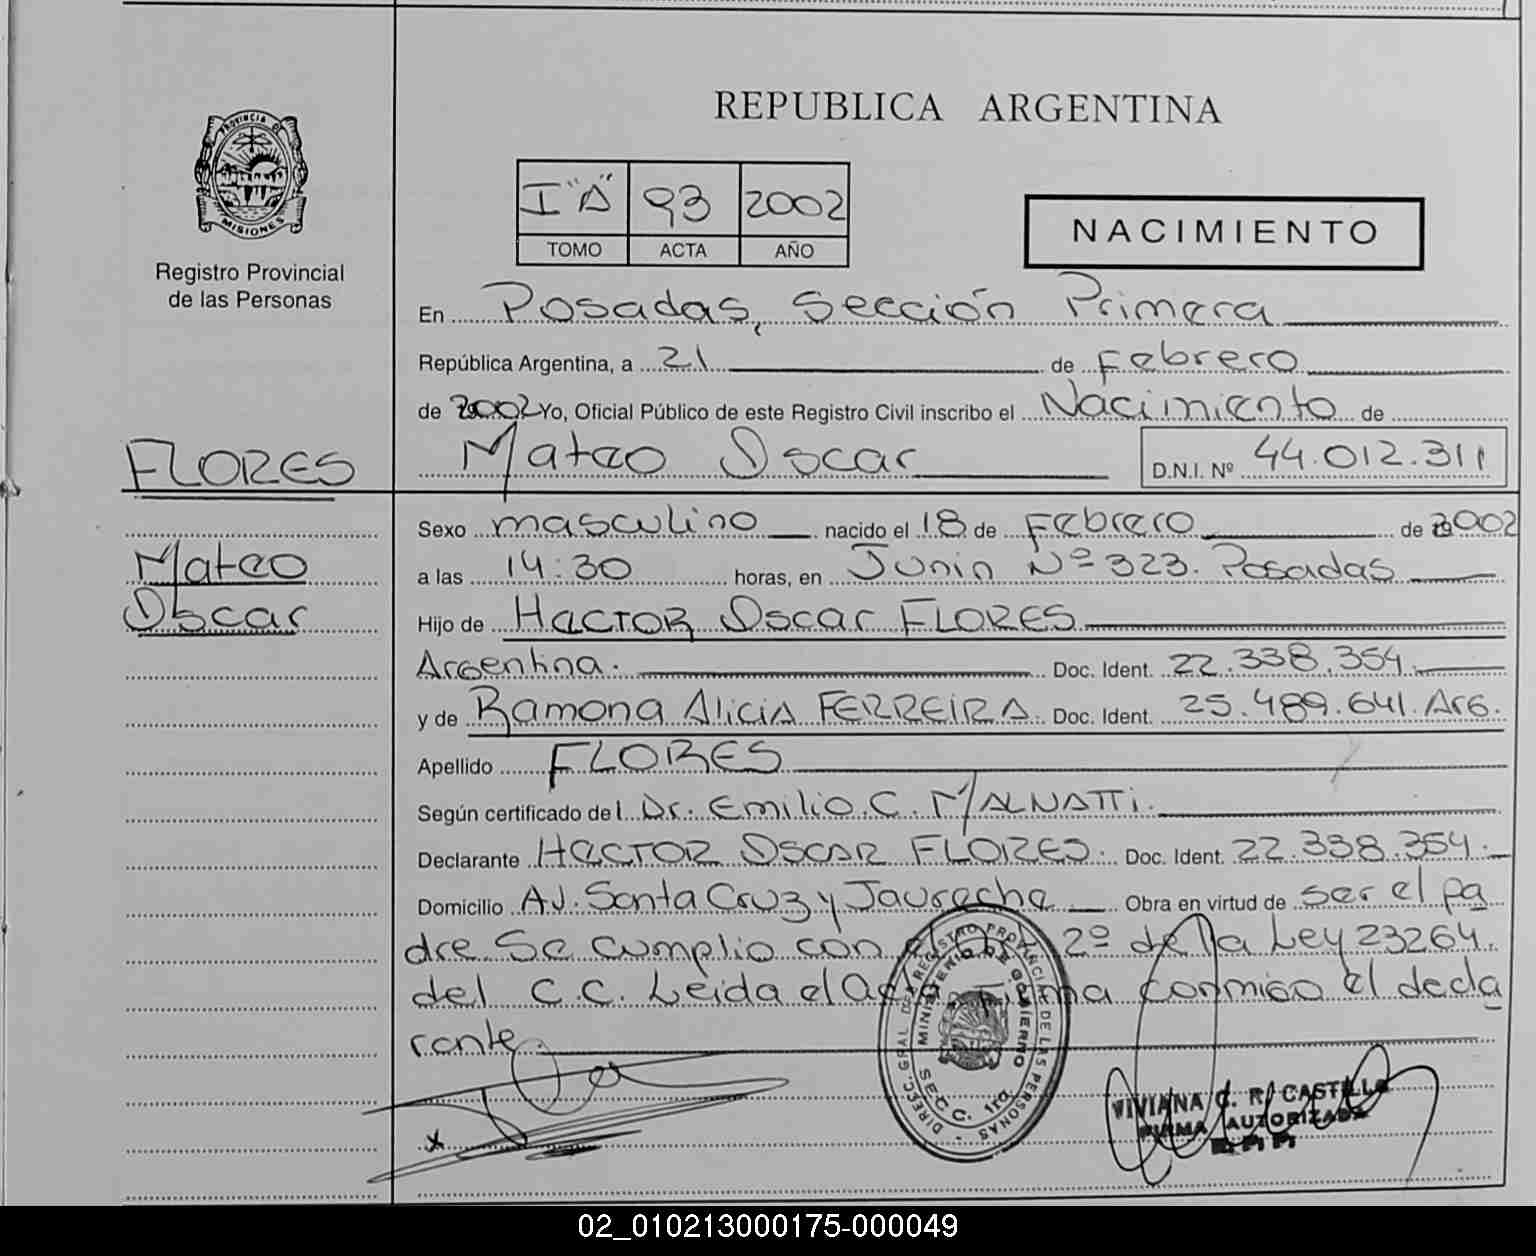 REPUBLICA ARGENTINA
PROVINCIA DE
MISIONES
Registro Provincial
de las Personas
I "A" 93 2002
TOMO ACTA AÑO
NACIMIENTO
En Posadas, Sección Primera
República Argentina, a 21 de Febrero
de 2002 Yo, Oficial Público de este Registro Civil inscribo el Nacimiento de
FLORES
Mateo Oscar D.N.I. Nº 44.012.311
Sexo masculino nacido el 18 de Febrero de 2002
Mateo
a las 14:30 horas, en Junin Nº 323. Posadas
Oscar
Hijo de HECTOR Oscar FLORES
Argentina. Doc. Ident. 22.338.354.
y de Ramona Alicia FERREIRA Doc. Ident. 25.489.641. Arg.
Apellido FLORES
Según certificado del Dr. Emilio C. MALNATTi.
Declarante HECTOR OSCAR FLORES. Doc. Ident. 22.338.354.
Domicilio Av. Santa Cruz y Jaureche Obra en virtud de ser el pa
dre Se cumplio con el 2º de la Ley 23264.
del C.C. Leida el Acta firma conmigo el decla
rante.
DIRECC. GRAL DEL REGISTRO PROVINCIAL DE LAS PERSONAS
MINISTERIO DE GOBIERNO
SECC. 1ra.
VIVIANA C. R. CASTILLO
FIRMA AUTORIZADA
R. P. P.
02_010213000175-000049